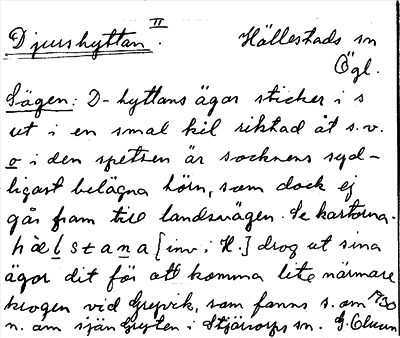 Djurshyttan II. Hällestads sn
Ögl.
Sägen: D-hyttans ägor sticker i s
ut i en smal kil riktad åt s.v.
o i den spetsen är socknens syd-
ligast belägna hörn, som dock ej
går fram till landsvägen. Se kartorna.
hælstana [inv. i H.] drog ut sina
ägor dit för att komma lite närmare
krogen vid Grytvik, som fanns s. om 1730
n. om sjön Gryten i Stjärorps sn. G.